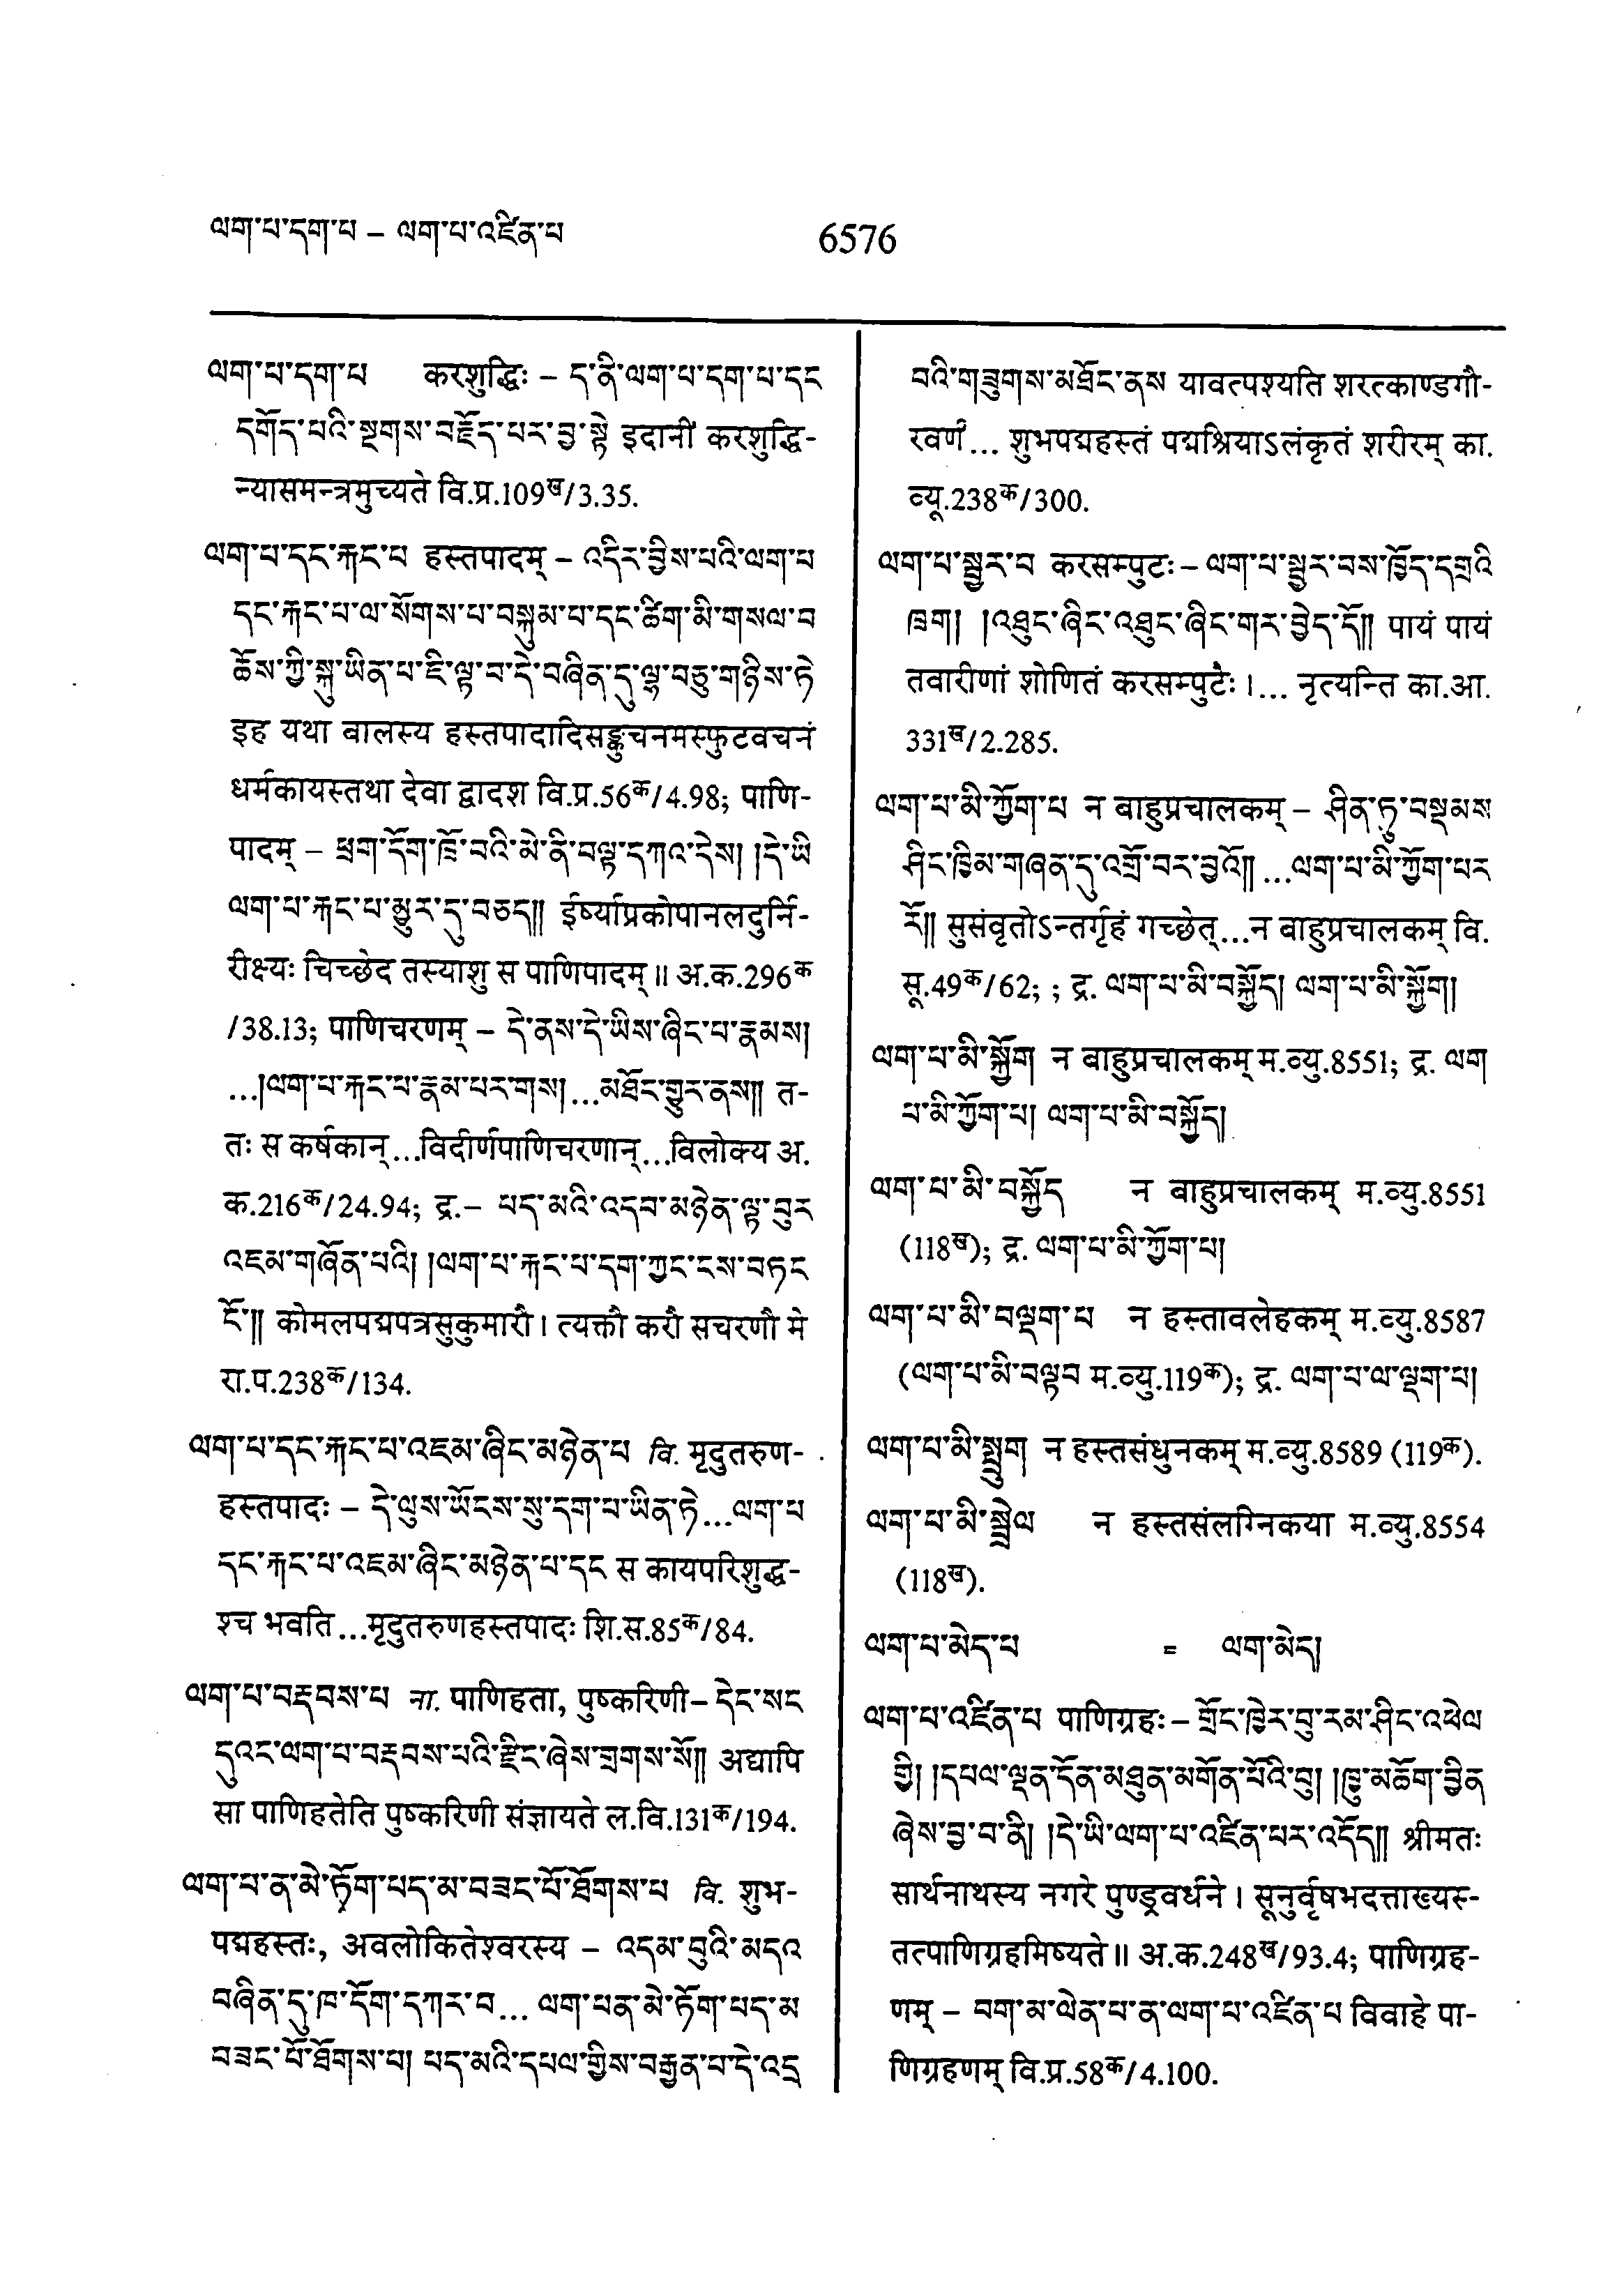 ལག་པ་དག་པ – ལག་པ་འཛིན་པ
6576
ལག་པ་དག་པ करशुद्धिः – ད་ནི་ལག་པ་དག་པ་དང
དགོད་པའི་སྔགས་བརྗོད་པར་བྱ་སྟེ इदानीं करशुद्धि-
न्यासमन्त्रमुच्यते वि.प्र.109ख/3.35.
ལག་པ་དང་རྐང་པ हस्तपादम् – འདིར་བྱིས་པའི་ལག་པ
དང་རྐང་པ་ལ་སོགས་པ་བསྐུམ་པ་དང་ཚིག་མི་གསལ་བ
ཆོས་ཀྱི་སྐུ་ཡིན་པ་ཇི་ལྟ་བ་དེ་བཞིན་དུ་ལྷ་བཅུ་གཉིས་ཏེ
इह यथा बालस्य हस्तपादादिसङ्कुचनमस्फुटवचनं
धर्मकायस्तथा देवा द्वादश वि.प्र.56क/4.98; पाणि-
पादम् – ཕྲག་དོག་ཁྲོ་བའི་མེ་ནི་བལྟ་དཀའ་དེས། །དེ་ཡི
ལག་པ་རྐང་པ་མྱུར་དུ་བཅད།། ईर्ष्याप्रकोपानलदुर्नि-
रीक्ष्यः चिच्छेद तस्याशु स पाणिपादम्॥ अ.क.296क
/38.13; पाणिचरणम् – དེ་ནས་དེ་ཡིས་ཞིང་པ་རྣམས།
...།ལག་པ་རྐང་པ་རྣམ་པར་གས།...མཐོང་གྱུར་ནས།། त-
तः स कर्षकान्...विदीर्णपाणिचरणान्...विलोक्य अ.
क.216क/24.94; द्र.– པད་མའི་འདབ་མཉེན་ལྟ་བུར
འཇམ་གཞོན་པའི། །ལག་པ་རྐང་པ་དག་ཀྱང་ངས་བཏང
ངོ་།། कोमलपद्मपत्रसुकुमारौ। त्यक्तौ करौ सचरणौ मे
रा.प.238क/134.
ལག་པ་དང་རྐང་པ་འཇམ་ཞིང་མཉེན་པ वि. मृदुतरुण-
हस्तपादः – དེ་ལུས་ཡོངས་སུ་དག་པ་ཡིན་ཏེ...ལག་པ
དང་རྐང་པ་འཇམ་ཞིང་མཉེན་པ་དང स कायपरिशुद्ध-
श्च भवति...मृदुतरुणहस्तपादः शि.स.85क/84.
ལག་པ་བརྡབས་པ ना. पाणिहता, पुष्करिणी– དེང་སང
དུའང་ལག་པ་བརྡབས་པའི་རྫིང་ཞེས་གྲགས་སོ།། अद्यापि
सा पाणिहतेति पुष्करिणी संज्ञायते ल.वि.131क/194.
ལག་པ་ན་མེ་ཏོག་པད་མ་བཟང་པོ་ཐོགས་པ वि. शुभ-
पद्महस्तः, अवलोकितेश्वरस्य – འདམ་བུའི་མདའ
བཞིན་དུ་ཁ་དོག་དཀར་བ... ལག་པན་མེ་ཏོག་པད་མ
བཟང་པོ་ཐོགས་པ། པད་མའི་དཔལ་གྱིས་བརྒྱན་པ་དེ་འདྲ
བའི་གཟུགས་མཐོང་ནས यावत्पश्यति शरत्काण्डगौ-
रवर्णं... शुभपद्महस्तं पद्मश्रियाऽलंकृतं शरीरम् का.
व्यू.238क/300.
ལག་པ་སྦྱར་བ करसम्पुटः– ལག་པ་སྦྱར་བས་ཁྱོད་དགྲའི
ཁྲག། །འཐུང་ཞིང་འཐུང་ཞིང་གར་བྱེད་དོ།། पायं पायं
तवारीणां शोणितं करसम्पुटैः।... नृत्यन्ति का.आ.
331ख/2.285.
ལག་པ་མི་ཀྱོག་པ न बाहुप्रचालकम् – ཤིན་ཏུ་བསྡམས
ཤིང་ཁྱིམ་གཞན་དུ་འགྲོ་བར་བྱའོ།། ...ལག་པ་མི་ཀྱོག་པར
རོ།། सुसंवृतोऽन्तर्गृहं गच्छेत्...न बाहुप्रचालकम् वि.
सू.49क/62; ; द्र. ལག་པ་མི་བསྐྱོད། ལག་པ་མི་སྐྱོག།
ལག་པ་མི་སྐྱོག न बाहुप्रचालकम् म.व्यु.8551; द्र. ལག
པ་མི་ཀྱོག་པ། ལག་པ་མི་བསྐྱོད།
ལག་པ་མི་བསྐྱོད न बाहुप्रचालकम् म.व्यु.8551
(118ख); द्र. ལག་པ་མི་ཀྱོག་པ།
ལག་པ་མི་བལྡག་པ न हस्तावलेहकम् म.व्यु.8587
(ལག་པ་མི་བལྟབ म.व्यु.119क); द्र. ལག་པ་ལ་ལྡག་པ།
ལག་པ་མི་སྤྲུག न हस्तसंधुनकम् म.व्यु.8589 (119क).
ལག་པ་མི་སྦྲེལ न हस्तसंलग्निकया म.व्यु.8554
(118ख).
ལག་པ་མེད་པ = ལག་མེད།
ལག་པ་འཛིན་པ पाणिग्रहः– གྲོང་ཁྱེར་བུ་རམ་ཤིང་འཕེལ
གྱི། །དཔལ་ལྡན་དོན་མཐུན་མགོན་པོའི་བུ། །ཁྱུ་མཆོག་བྱིན
ཞེས་བྱ་བ་ནི། །དེ་ཡི་ལག་པ་འཛིན་པར་འདོད།། श्रीमतः
सार्थनाथस्य नगरे पुण्ड्रवर्धने। सूनुर्वृषभदत्ताख्यस्-
तत्पाणिग्रहमिष्यते॥ अ.क.248ख/93.4; पाणिग्रह-
णम् – བག་མ་ལེན་པ་ན་ལག་པ་འཛིན་པ विवाहे पा-
णिग्रहणम् वि.प्र.58क/4.100.